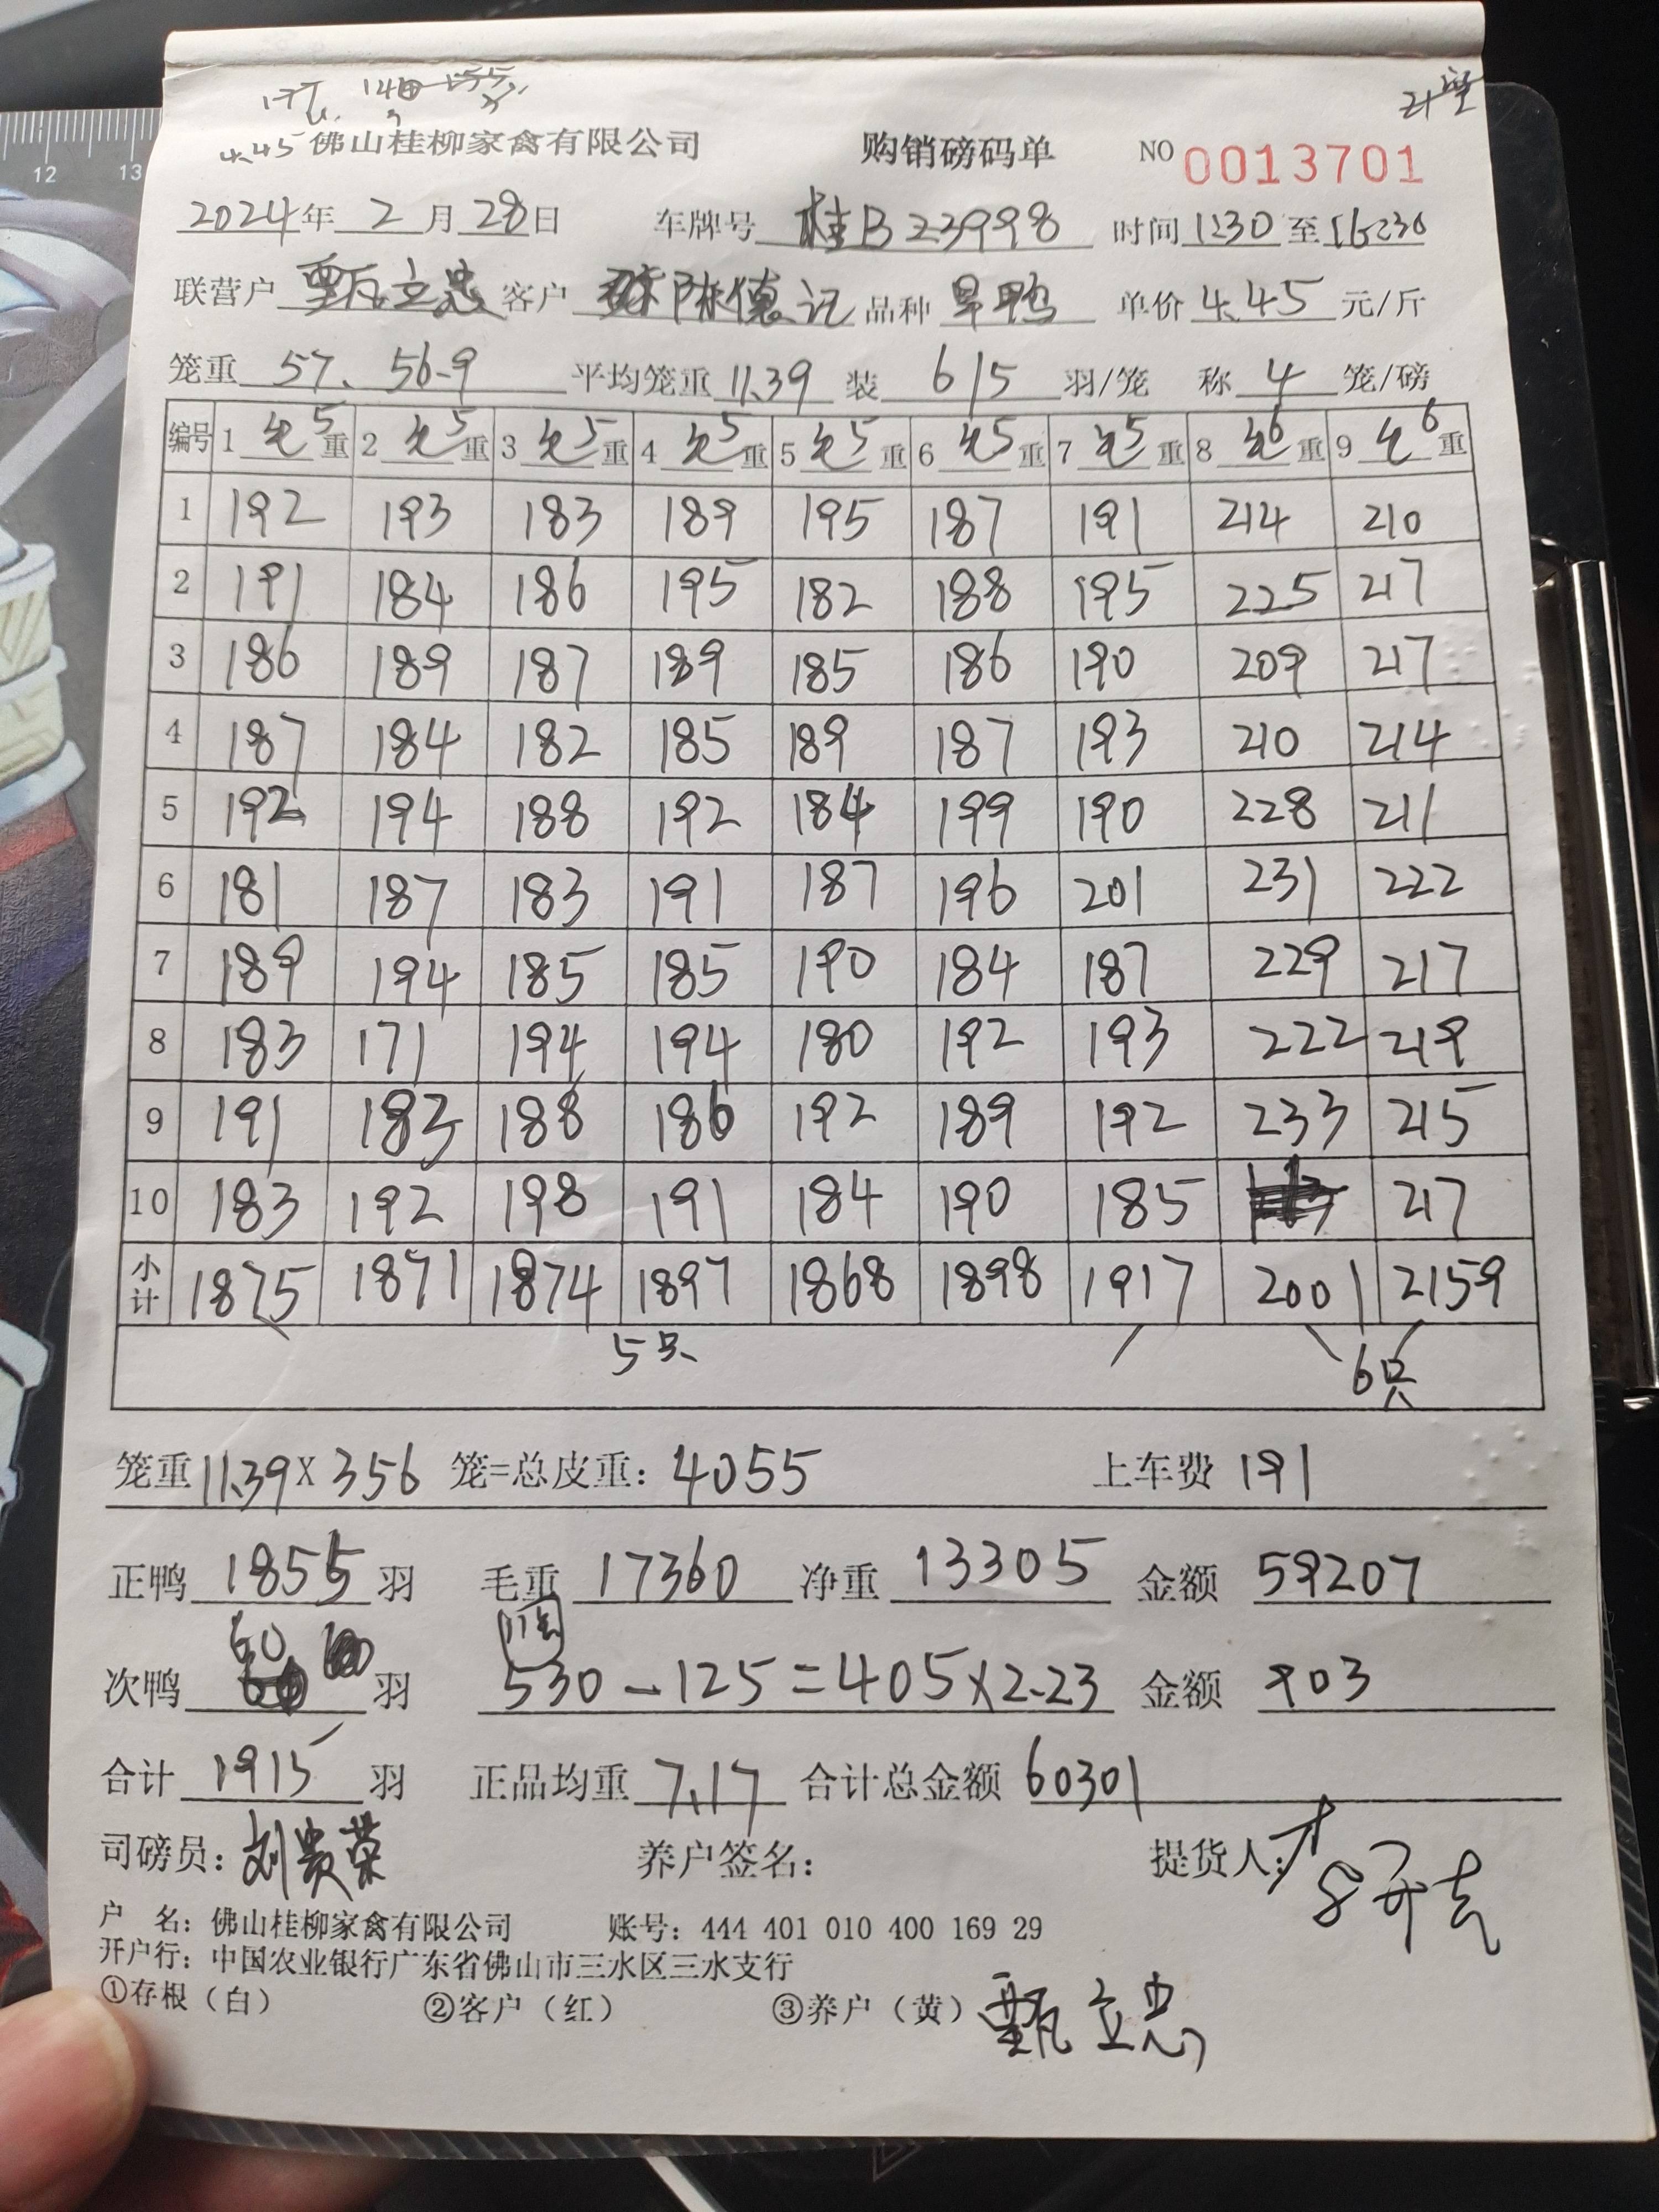 4.45 佛山桂柳家禽有限公司 购销磅码单 NO 0013701
2024年 2 月 28 日 车牌号 桂B23998 时间 1:30 至
联营户 甄立忠 客户 德记 品种 旱鸭 单价 4.45 元/斤
笼重 57、56.9 平均笼重 11.39 装 6/5 羽/笼 称 4 笼/磅
编号 1 5 重 2 5 重 3 5 重 4 5 重 5 5 重 6 5 重 7 5 重 8 6 重 9 6 重
1 192 193 183 189 195 187 191 214 210
2 191 184 186 195 182 188 195 225 217
3 186 189 187 189 185 186 190 209 217
4 187 184 182 185 189 187 193 210 214
5 192 194 188 192 184 199 190 228 211
6 181 187 183 191 187 196 201 231 222
7 189 194 185 185 190 184 187 229 217
8 183 171 194 194 180 192 193 222 219
9 191 183 188 186 192 189 192 233 215
10 183 192 198 191 184 190 185 217
小计 1875 1871 1874 1897 1868 1898 1917 2001 2159
5只 6只
笼重 11.39 X 356 笼=总皮重: 4055 上车费 191
正鸭 1855 羽 毛重 17360 净重 13305 金额 59207
次鸭 60 羽 530-125=405×2.23 金额 903
合计 1915 羽 正品均重 7.17 合计总金额 60301
司磅员: 刘贵荣 养户签名: 提货人:
户 名: 佛山桂柳家禽有限公司 账号: 444 401 010 400 169 29
开户行: 中国农业银行广东省佛山市三水区三水支行
①存根（白） ②客户（红） ③养户（黄） 甄立忠
12 13